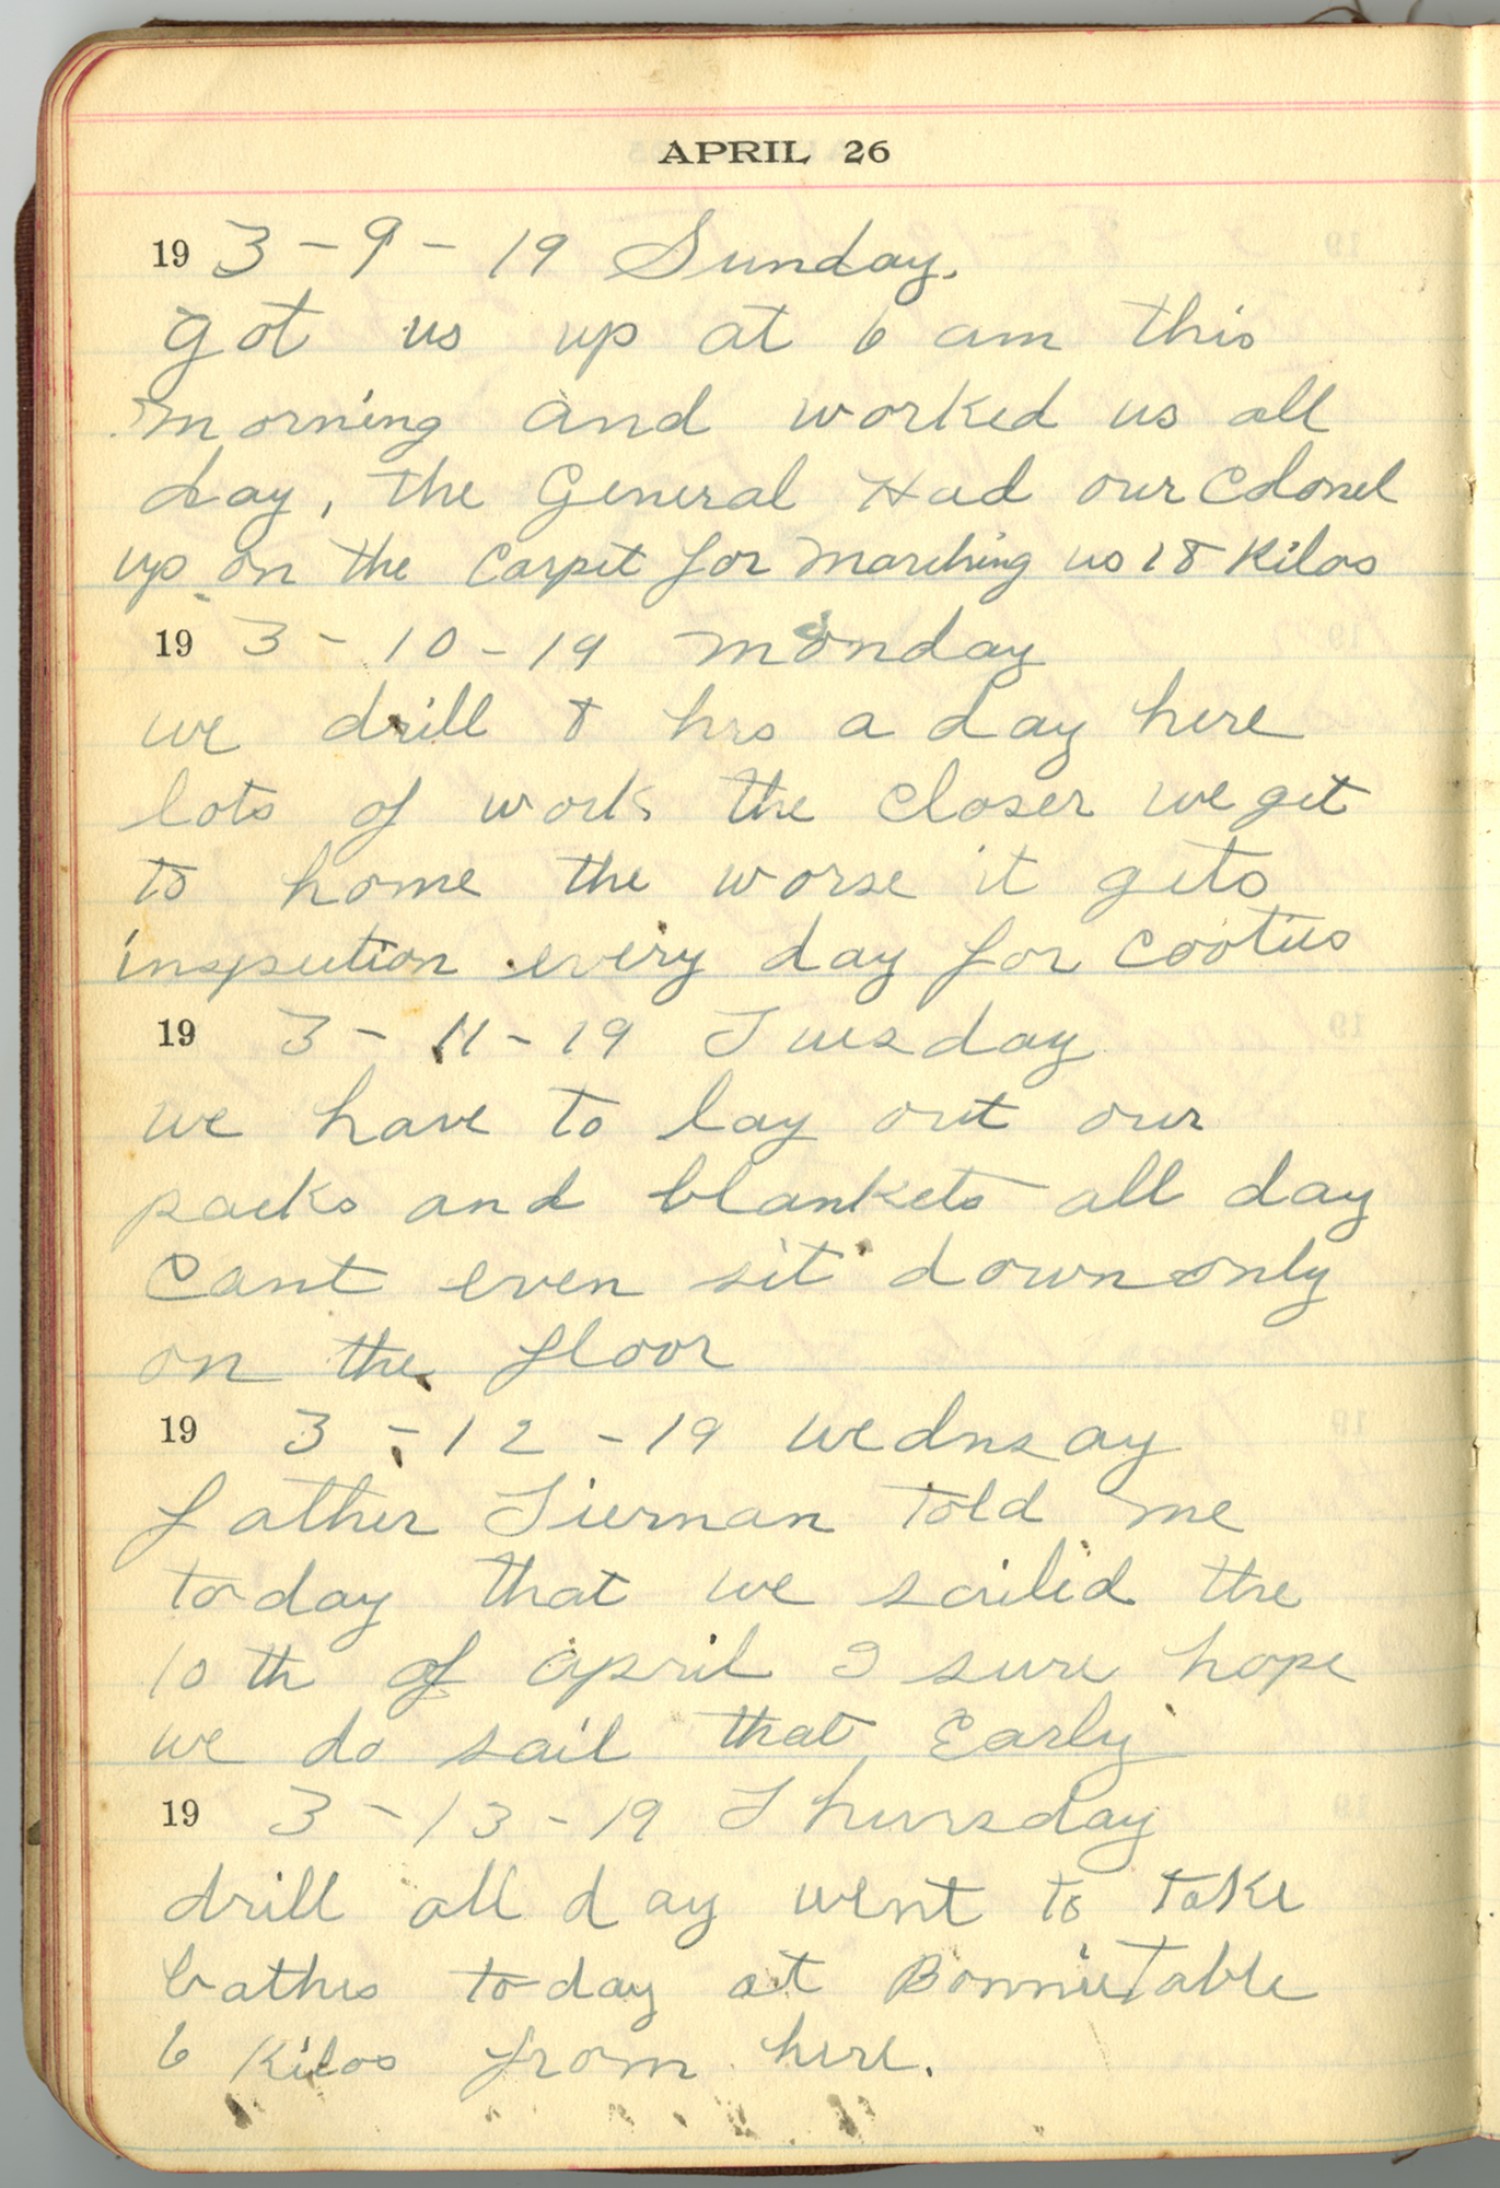 APRIL 26
19 3 - 9 - 19 Sunday.
got us up at 6 am this
morning and worked us all
day, the General Had our Colonel
up on the Carpet for marching us 18 Kilos
19 3 - 10 - 19 monday
we drill 8 hrs a day here
lots of work the closer we get
to home the worse it gets
inspection every day for Cooties
19 3 - 11 - 19 Tuesday
we have to lay out our
packs and blankets all day
Cant even sit down only
on the floor
19 3 - 12 - 19 wednsay
father Tiernan told me
today that we sailed the
10th of april I sure hope
we do sail that Early
19 3 - 13 - 19 Thursday
drill all day went to take
bathes today at BonnieTable
6 Kilos from here.